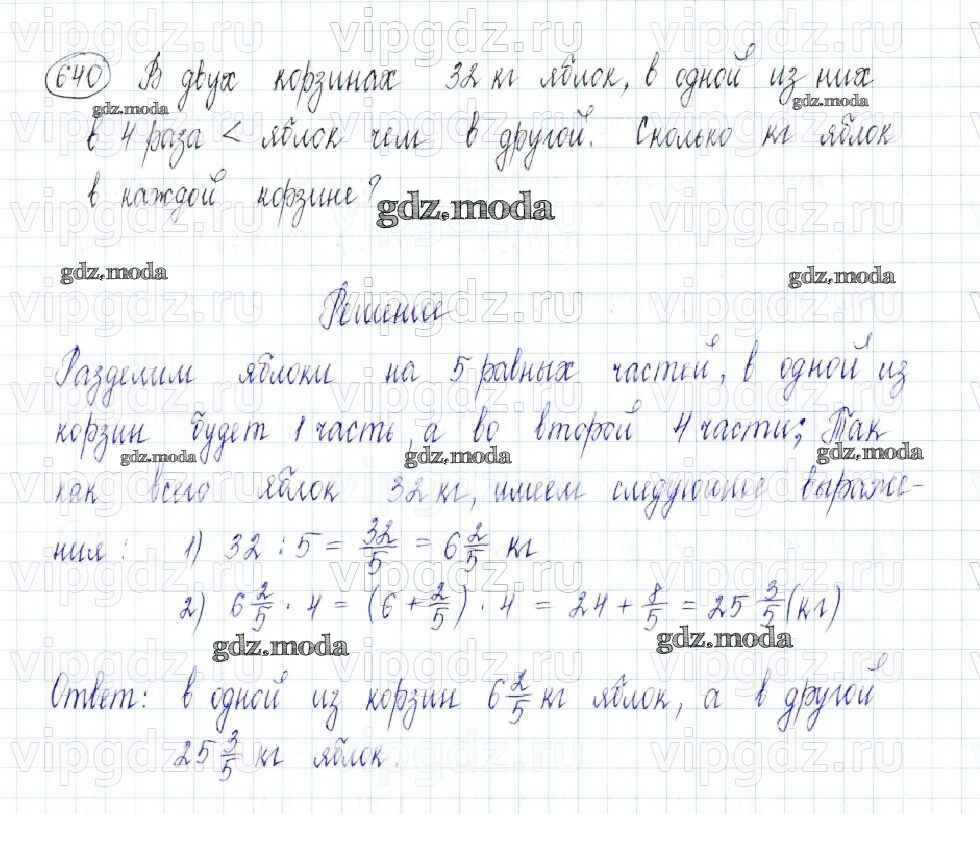 640 В двух корзинах 32 кг яблок, в одной из них
gdz.moda gdz.moda
в 4 раза < яблок чем в другой. Сколько кг яблок
в каждой корзине?
gdz.moda
gdz.moda gdz.moda
Решение
Разделим яблоки на 5 равных частей, в одной из
корзин будет 1 часть, а во второй 4 части; Так
gdz.moda gdz.moda gdz.moda
как всего яблок 32 кг, имеем следующие выраже-
ния: 1) 32 : 5 = 32/5 = 6 2/5 кг
2) 6 2/5 · 4 = (6 + 2/5) · 4 = 24 + 8/5 = 25 3/5 (кг)
gdz.moda gdz.moda
Ответ: в одной из корзин 6 2/5 кг яблок, а в другой
25 3/5 кг яблок.
vipgdz.ru